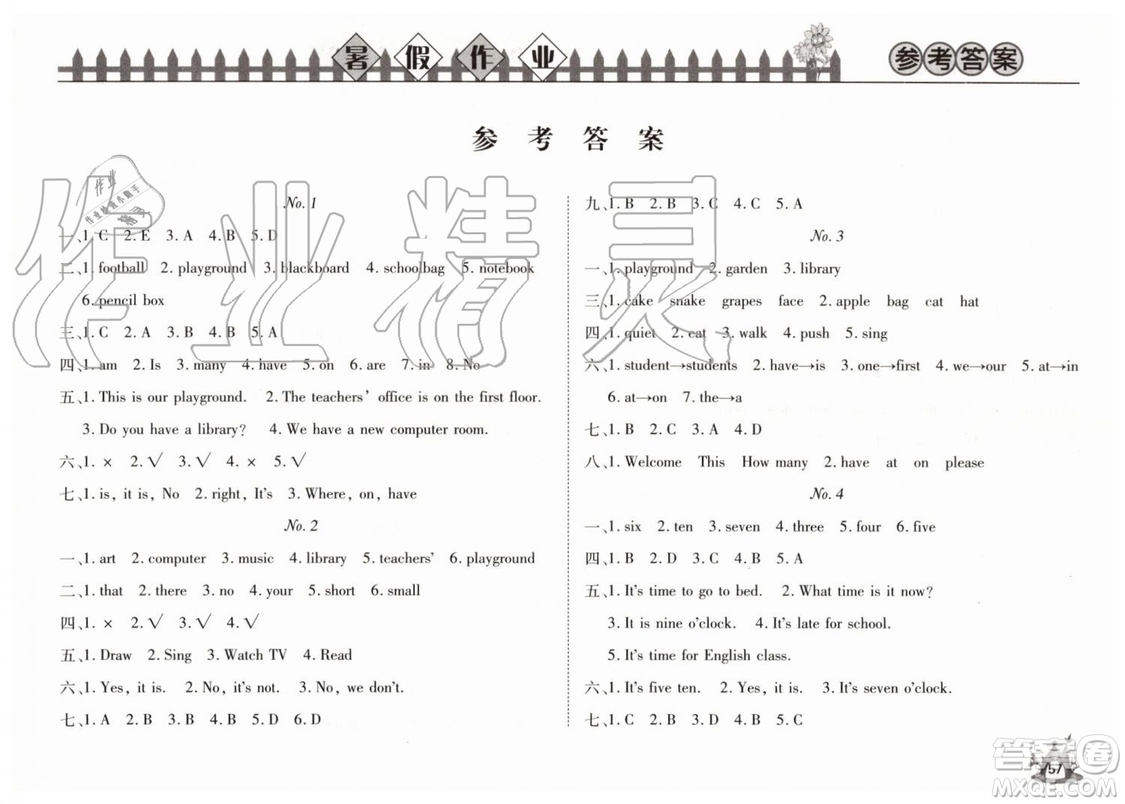 暑假作业
参考答案
参考答案
No. 1
一、1. C 2. E 3. A 4. B 5. D
二、1. football 2. playground 3. blackboard 4. schoolbag 5. notebook
6. pencil box
三、1. C 2. A 3. B 4. B 5. A
四、1. am 2. Is 3. many 4. have 5. on 6. are 7. in 8. No
五、1. This is our playground. 2. The teachers' office is on the first floor.
3. Do you have a library? 4. We have a new computer room.
六、1. × 2. √ 3. √ 4. × 5. √
七、1. is, it is, No 2. right, It's 3. Where, on, have
No. 2
一、1. art 2. computer 3. music 4. library 5. teachers' 6. playground
二、1. that 2. there 3. no 4. your 5. short 6. small
四、1. × 2. √ 3. √ 4. √
五、1. Draw 2. Sing 3. Watch TV 4. Read
六、1. Yes, it is. 2. No, it's not. 3. No, we don't.
七、1. A 2. B 3. B 4. B 5. D 6. D
九、1. B 2. B 3. C 4. C 5. A
No. 3
一、1. playground 2. garden 3. library
三、1. cake snake grapes face 2. apple bag cat hat
四、1. quiet 2. eat 3. walk 4. push 5. sing
六、1. student→students 2. have→is 3. one→first 4. we→our 5. at→in
6. at→on 7. the→a
七、1. B 2. C 3. A 4. D
八、1. Welcome This How many 2. have at on please
No. 4
一、1. six 2. ten 3. seven 4. three 5. four 6. five
四、1. B 2. D 3. C 4. B 5. A
五、1. It's time to go to bed. 2. What time is it now?
3. It is nine o'clock. 4. It's late for school.
5. It's time for English class.
六、1. It's five ten. 2. Yes, it is. 3. It's seven o'clock.
七、1. C 2. B 3. D 4. B 5. C
57
作业精灵
答案圈
MXQE.COM